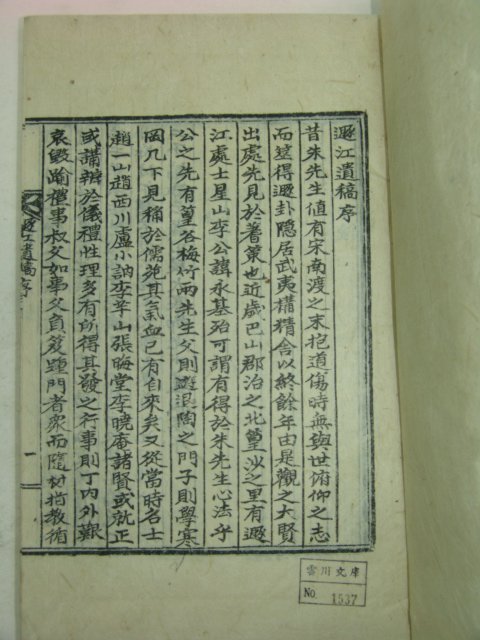 遯江遺稿序
昔朱先生値有宋南渡之末抱道傷時無與世俯仰之志
而筮得遯卦隱居武夷構精舍以終餘年由是觀之大賢
出處先見於蓍策也近歲巴山郡治之北篁沙之里有遯
江處士星山李公諱永基殆可謂有得於朱先生心法乎
公之先有篁谷梅竹兩先生父則遊退陶之門子則學寒
岡几下見稱於儒苑其氣血已有自來矣又從當時名士
趙一山趙西川盧小訥李莘山張晦堂李曉庵諸賢或就正
或講辨於儀禮性理多有所得其發之行事則丁內外艱
哀毁踰禮事叔父如事父負笈踵門者衆而隨材指敎循
遯江遺稿序
一
雲川文庫
No. 1537